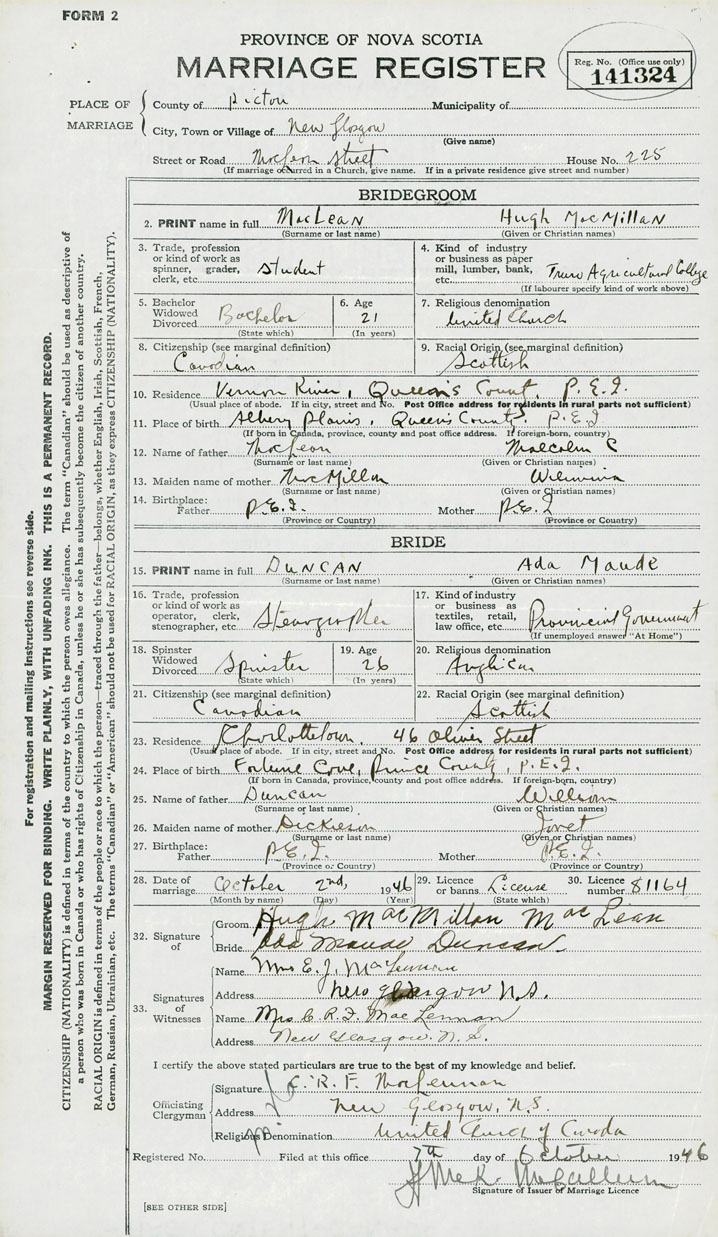 FORM 2
PROVINCE OF NOVA SCOTIA
MARRIAGE REGISTER
Reg. No. (Office use only)
141324
PLACE OF MARRIAGE
County of Pictou Municipality of
City, Town or Village of New Glasgow
(Give name)
Street or Road MacLean Street House No. 225
(If marriage occurred in a Church, give name. If in a private residence give street and number)
BRIDEGROOM
2. PRINT name in full MacLean Hugh MacMillan
(Surname or last name) (Given or Christian names)
3. Trade, profession or kind of work as spinner, grader, clerk, etc. Student
4. Kind of industry or business as paper mill, lumber, bank, etc. Truro Agricultural College
(If labourer specify kind of work above)
5. Bachelor Widowed Divorced Bachelor
(State which)
6. Age 21
(In years)
7. Religious denomination
United Church
8. Citizenship (see marginal definition)
Canadian
9. Racial Origin (see marginal definition)
Scottish
10. Residence Vernon River, Queen's Count. P.E.I.
(Usual place of abode. If in city, street and No. Post Office address for residents in rural parts not sufficient)
11. Place of birth Albery Plains, Queens County. P.E.I
(If born in Canada, province, county and post office address. If foreign-born, country)
12. Name of father MacLean Malcolm C
(Surname or last name) (Given or Christian names)
13. Maiden name of mother MacMillan Wilmina
(Surname or last name) (Given or Christian names)
14. Birthplace:
Father P.E.I. Mother P.E.I
(Province or Country) (Province or Country)
BRIDE
15. PRINT name in full DUNCAN Ada Maude
(Surname or last name) (Given or Christian names)
16. Trade, profession or kind of work as operator, clerk, stenographer, etc. Stenographer
17. Kind of industry or business as textiles, retail, law office, etc. Provincial Government
(If unemployed answer "At Home")
18. Spinster Widowed Divorced Spinster
(State which)
19. Age 26
(In years)
20. Religious denomination
Anglican
21. Citizenship (see marginal definition)
Canadian
22. Racial Origin (see marginal definition)
Scottish
23. Residence Charlottetown, 46 Oliver Street
(Usual place of abode. If in city, street and No. Post Office address for residents in rural parts not sufficient)
24. Place of birth Fortune Cove, Prince County, P.E.I.
(If born in Canada, province, county and post office address. If foreign-born, country)
25. Name of father Duncan William
(Surname or last name) (Given or Christian names)
26. Maiden name of mother Dickieson Janet
(Surname or last name) (Given or Christian names)
27. Birthplace:
Father P.E.I. Mother P.E.I.
(Province or Country) (Province or Country)
28. Date of marriage October 2nd, 1946
(Month by name) (Day) (Year)
29. Licence or banns License
(State which)
30. Licence number 81164
32. Signature of
Groom Hugh MacMillan MacLean
Bride Ada Maude Duncan
33. Signatures of Witnesses
Name Mrs E. J. MacLennan
Address New Glasgow N.S.
Name Mrs C. R. F. MacLennan
Address New Glasgow. N. S.
I certify the above stated particulars are true to the best of my knowledge and belief.
Officiating Clergyman
Signature C. R. F. MacLennan
Address New Glasgow, N.S.
Religious Denomination United Church of Canada
Registered No. Filed at this office 7th day of October 1946
McK. McCallum
Signature of Issuer of Marriage Licence
[SEE OTHER SIDE]
For registration and mailing instructions see reverse side.
MARGIN RESERVED FOR BINDING. WRITE PLAINLY, WITH UNFADING INK. THIS IS A PERMANENT RECORD.
CITIZENSHIP (NATIONALITY) is defined in terms of the country to which the person owes allegiance. The term "Canadian" should be used as descriptive of
a person who was born in Canada or who has rights of Citizenship in Canada, unless he or she has subsequently become the citizen of another country.
RACIAL ORIGIN is defined in terms of the people or race to which the person—traced through the father—belongs, whether English, Irish, Scottish, French,
German, Russian, Ukrainian, etc. The terms "Canadian" or "American" should not be used for RACIAL ORIGIN, as they express CITIZENSHIP (NATIONALITY).